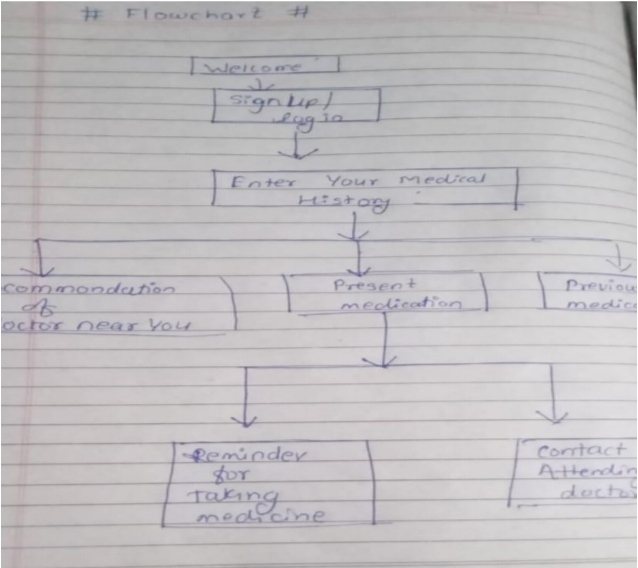 # Flowchart #
Welcome
Sign Up/
Log in
Enter Your medical
History
commondation
of
octor near You
Present
medication
Previou
medic
Reminder
for
Taking
medicine
Contact
Attendin
docto